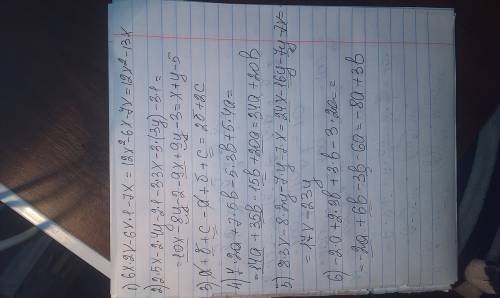 1) 6x·2x-6x·1-7x=12x²-6x-7x=12x²-13x
2) 2·5x-2·4y-2·1-3·3x-3·(3y)-3·1=
=10x-8y-2-9x+9y-3=x+y-5
3) a+b+c-a+b+c=2b+2c
4) 7·2a+7·5b-5·3b+5·4a=
=14a+35b-15b+20a=34a+20b
5) 8·3x-8·2y-7y-7x=24x-16y-7y-7x=
=17x-23y
6) -2·a+2·3b+3·b-3·2a=
=-2a+6b-3b-6a=-8a+3b